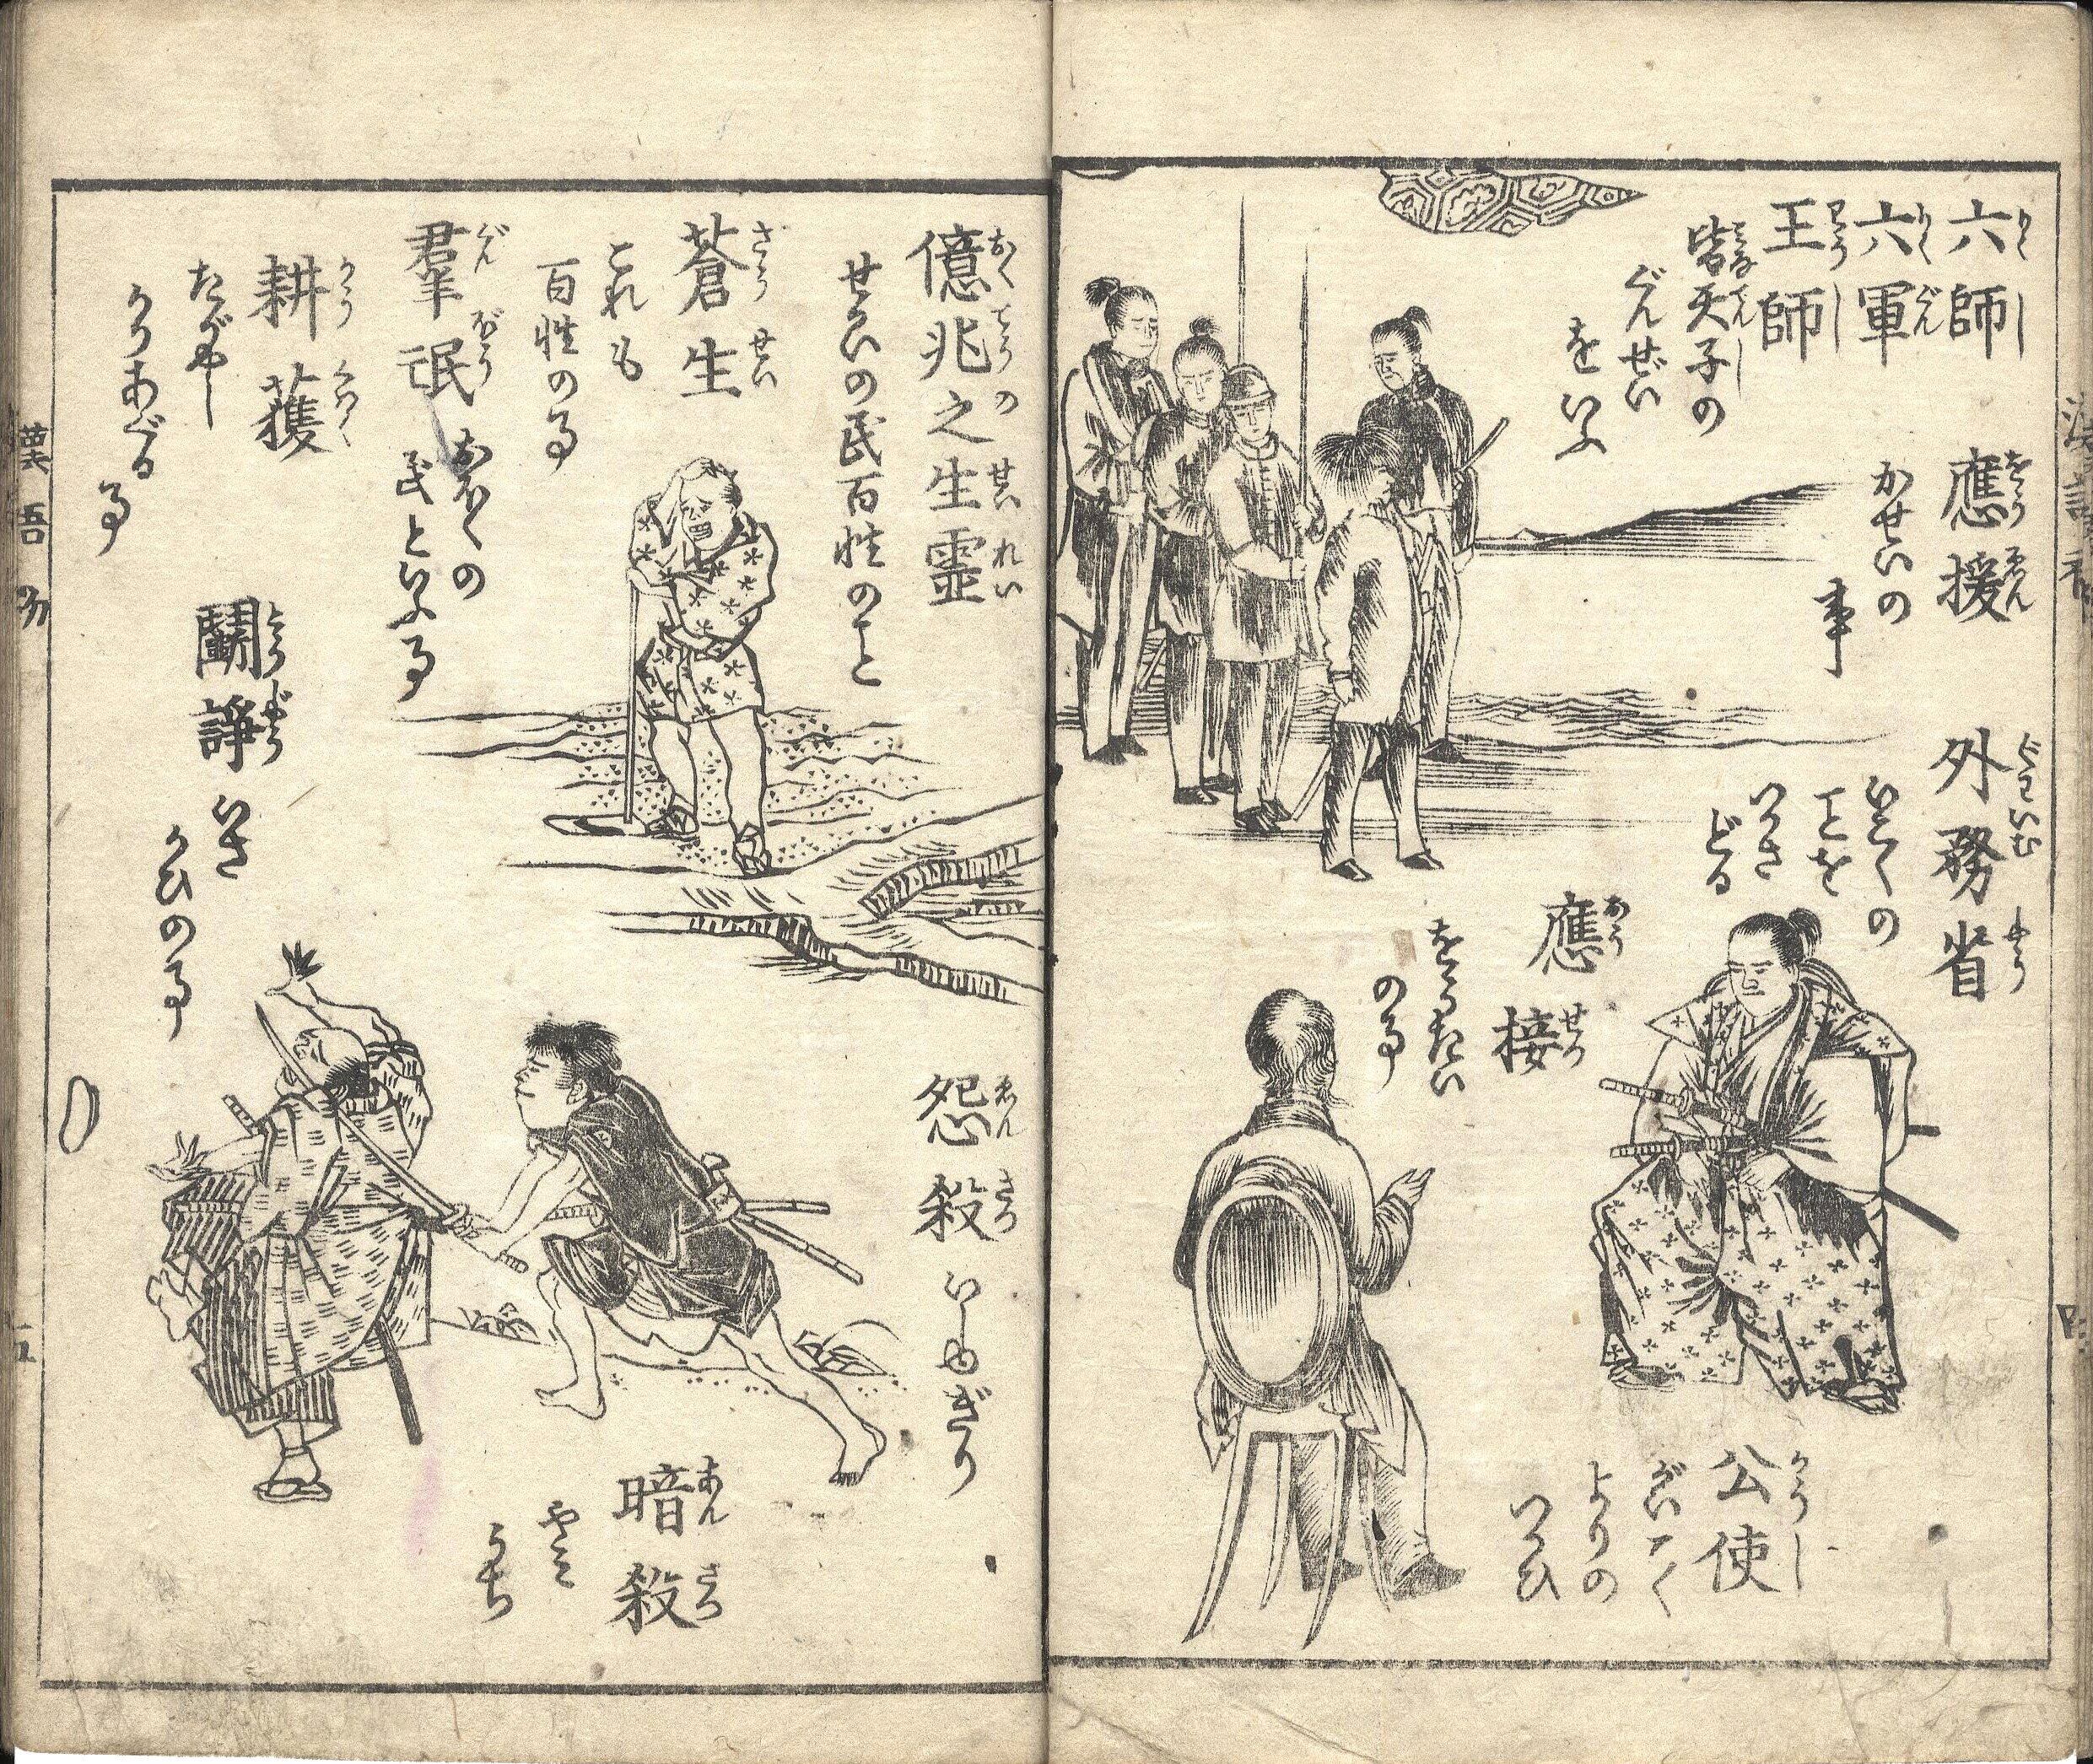 六師
りくし
六軍
りくぐん
王師
わうし
皆天子の
みなてんし
ぐんぜい
をいふ
應援
をうゑん
かせいの
事
外務省
ぐわいむしやう
いこくの
ことを
つかさ
どる
應接
おうせつ
をうたい
の事
公使
こうし
ぐわいこく
よりの
つかひ
億兆之生霊
おくてうのせいれい
せかいの民百姓のこと
蒼生
さうせい
これも
百姓の事
羣氓
ぐんぼう
おほくの
民といふ事
耕獲
かうくわく
たがやし
かりあぐる
事
鬪諍
とうじやう
いさ
かひの事
怨殺
ゑんさつ
いしゆぎり
暗殺
あんさつ
やみ
うち